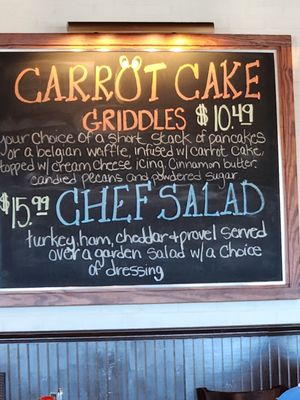 CARROT CAKE
GRIDDLES $10.49
your choice of a short stack of pancakes
or a belgian waffle, infused w/ carrot cake,
topped w/ cream cheese icing, cinnamon butter,
candied pecans and powdered sugar
$15.99 CHEF SALAD
turkey, ham, cheddar + provel served
over a garden salad w/ a choice
of dressing